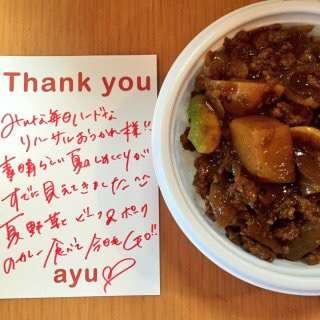 Thank you
みんな毎日ハードな
リハーサルおつかれ様!!
素晴らしい夏のしめくくりが
すでに見えてきました^^
夏野菜とビーフ&ポーク
のカレー食べて今日も
ayu♡